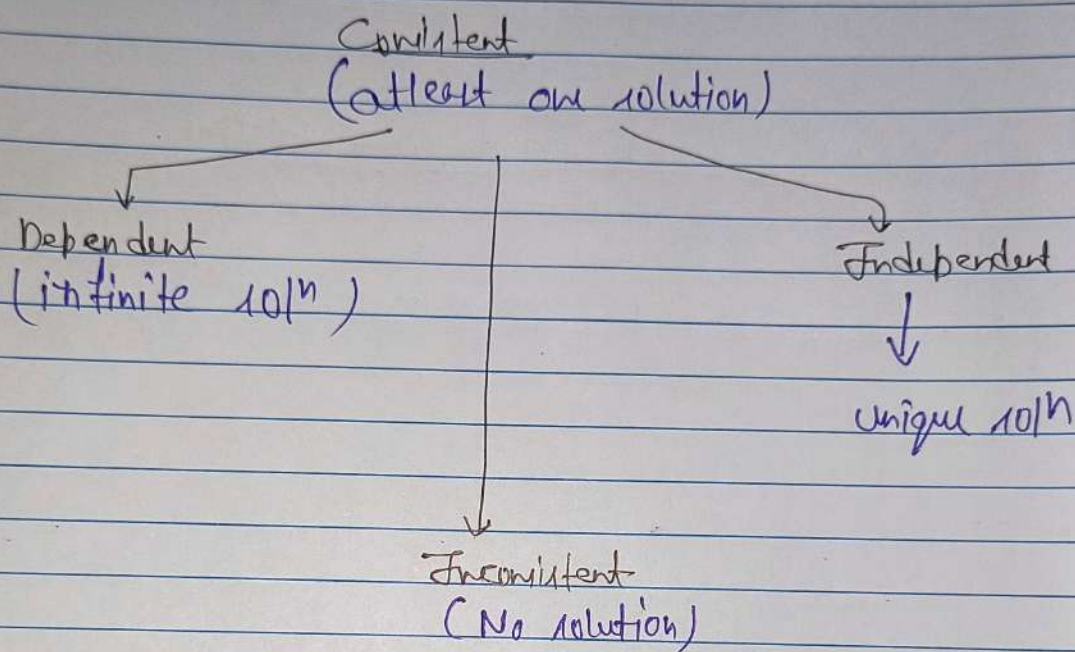 Consistent
(atleast one solution)
Dependent
(infinite solⁿ)
Independent
unique solⁿ
Inconsistent
(No solution)